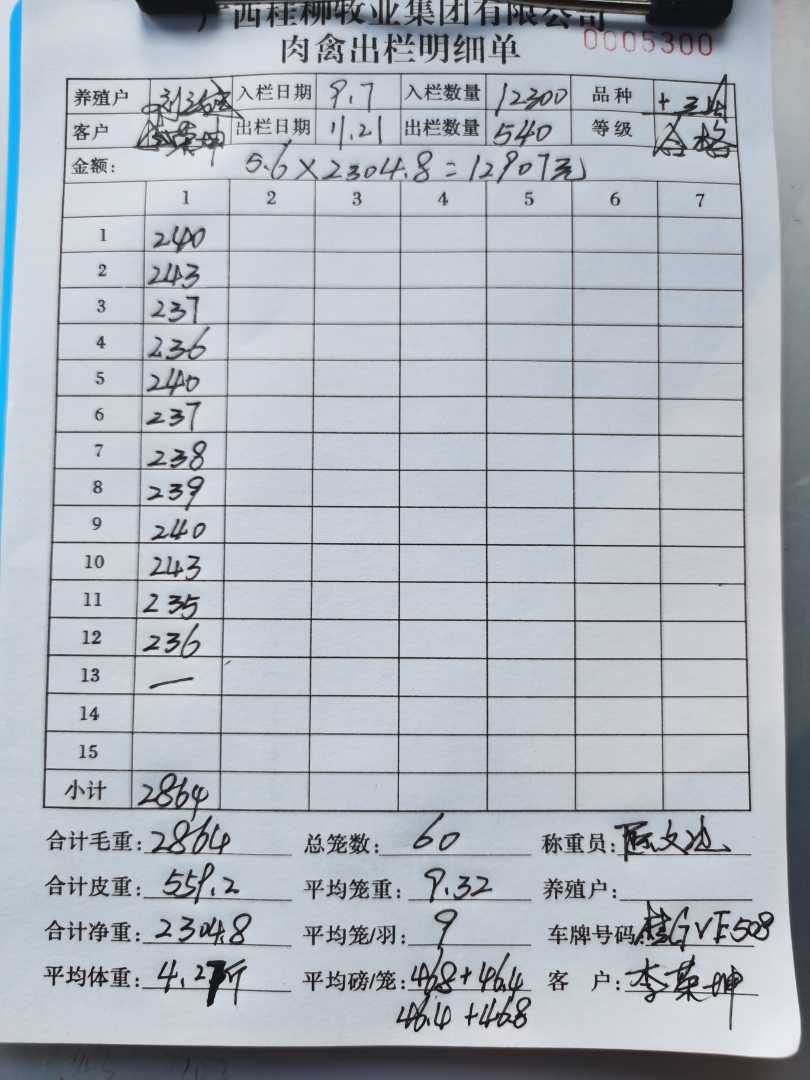 广西桂柳牧业集团有限公司
肉禽出栏明细单 0005300
养殖户 入栏日期 9.7 入栏数量 12300 品种
客户 李荣坤 出栏日期 11.21 出栏数量 540 等级 合格
金额: 5.6×2304.8=12907元
1 2 3 4 5 6 7
1 240
2 243
3 237
4 236
5 240
6 237
7 238
8 239
9 240
10 243
11 235
12 236
13 —
14
15
小计 2864
合计毛重: 2864 总笼数: 60 称重员:
合计皮重: 559.2 平均笼重: 9.32 养殖户:
合计净重: 2304.8 平均笼/羽: 9 车牌号码: 桂GVE508
平均体重: 4.27斤 平均磅/笼: 46.8+46.4 客 户: 李荣坤
46.4+46.8